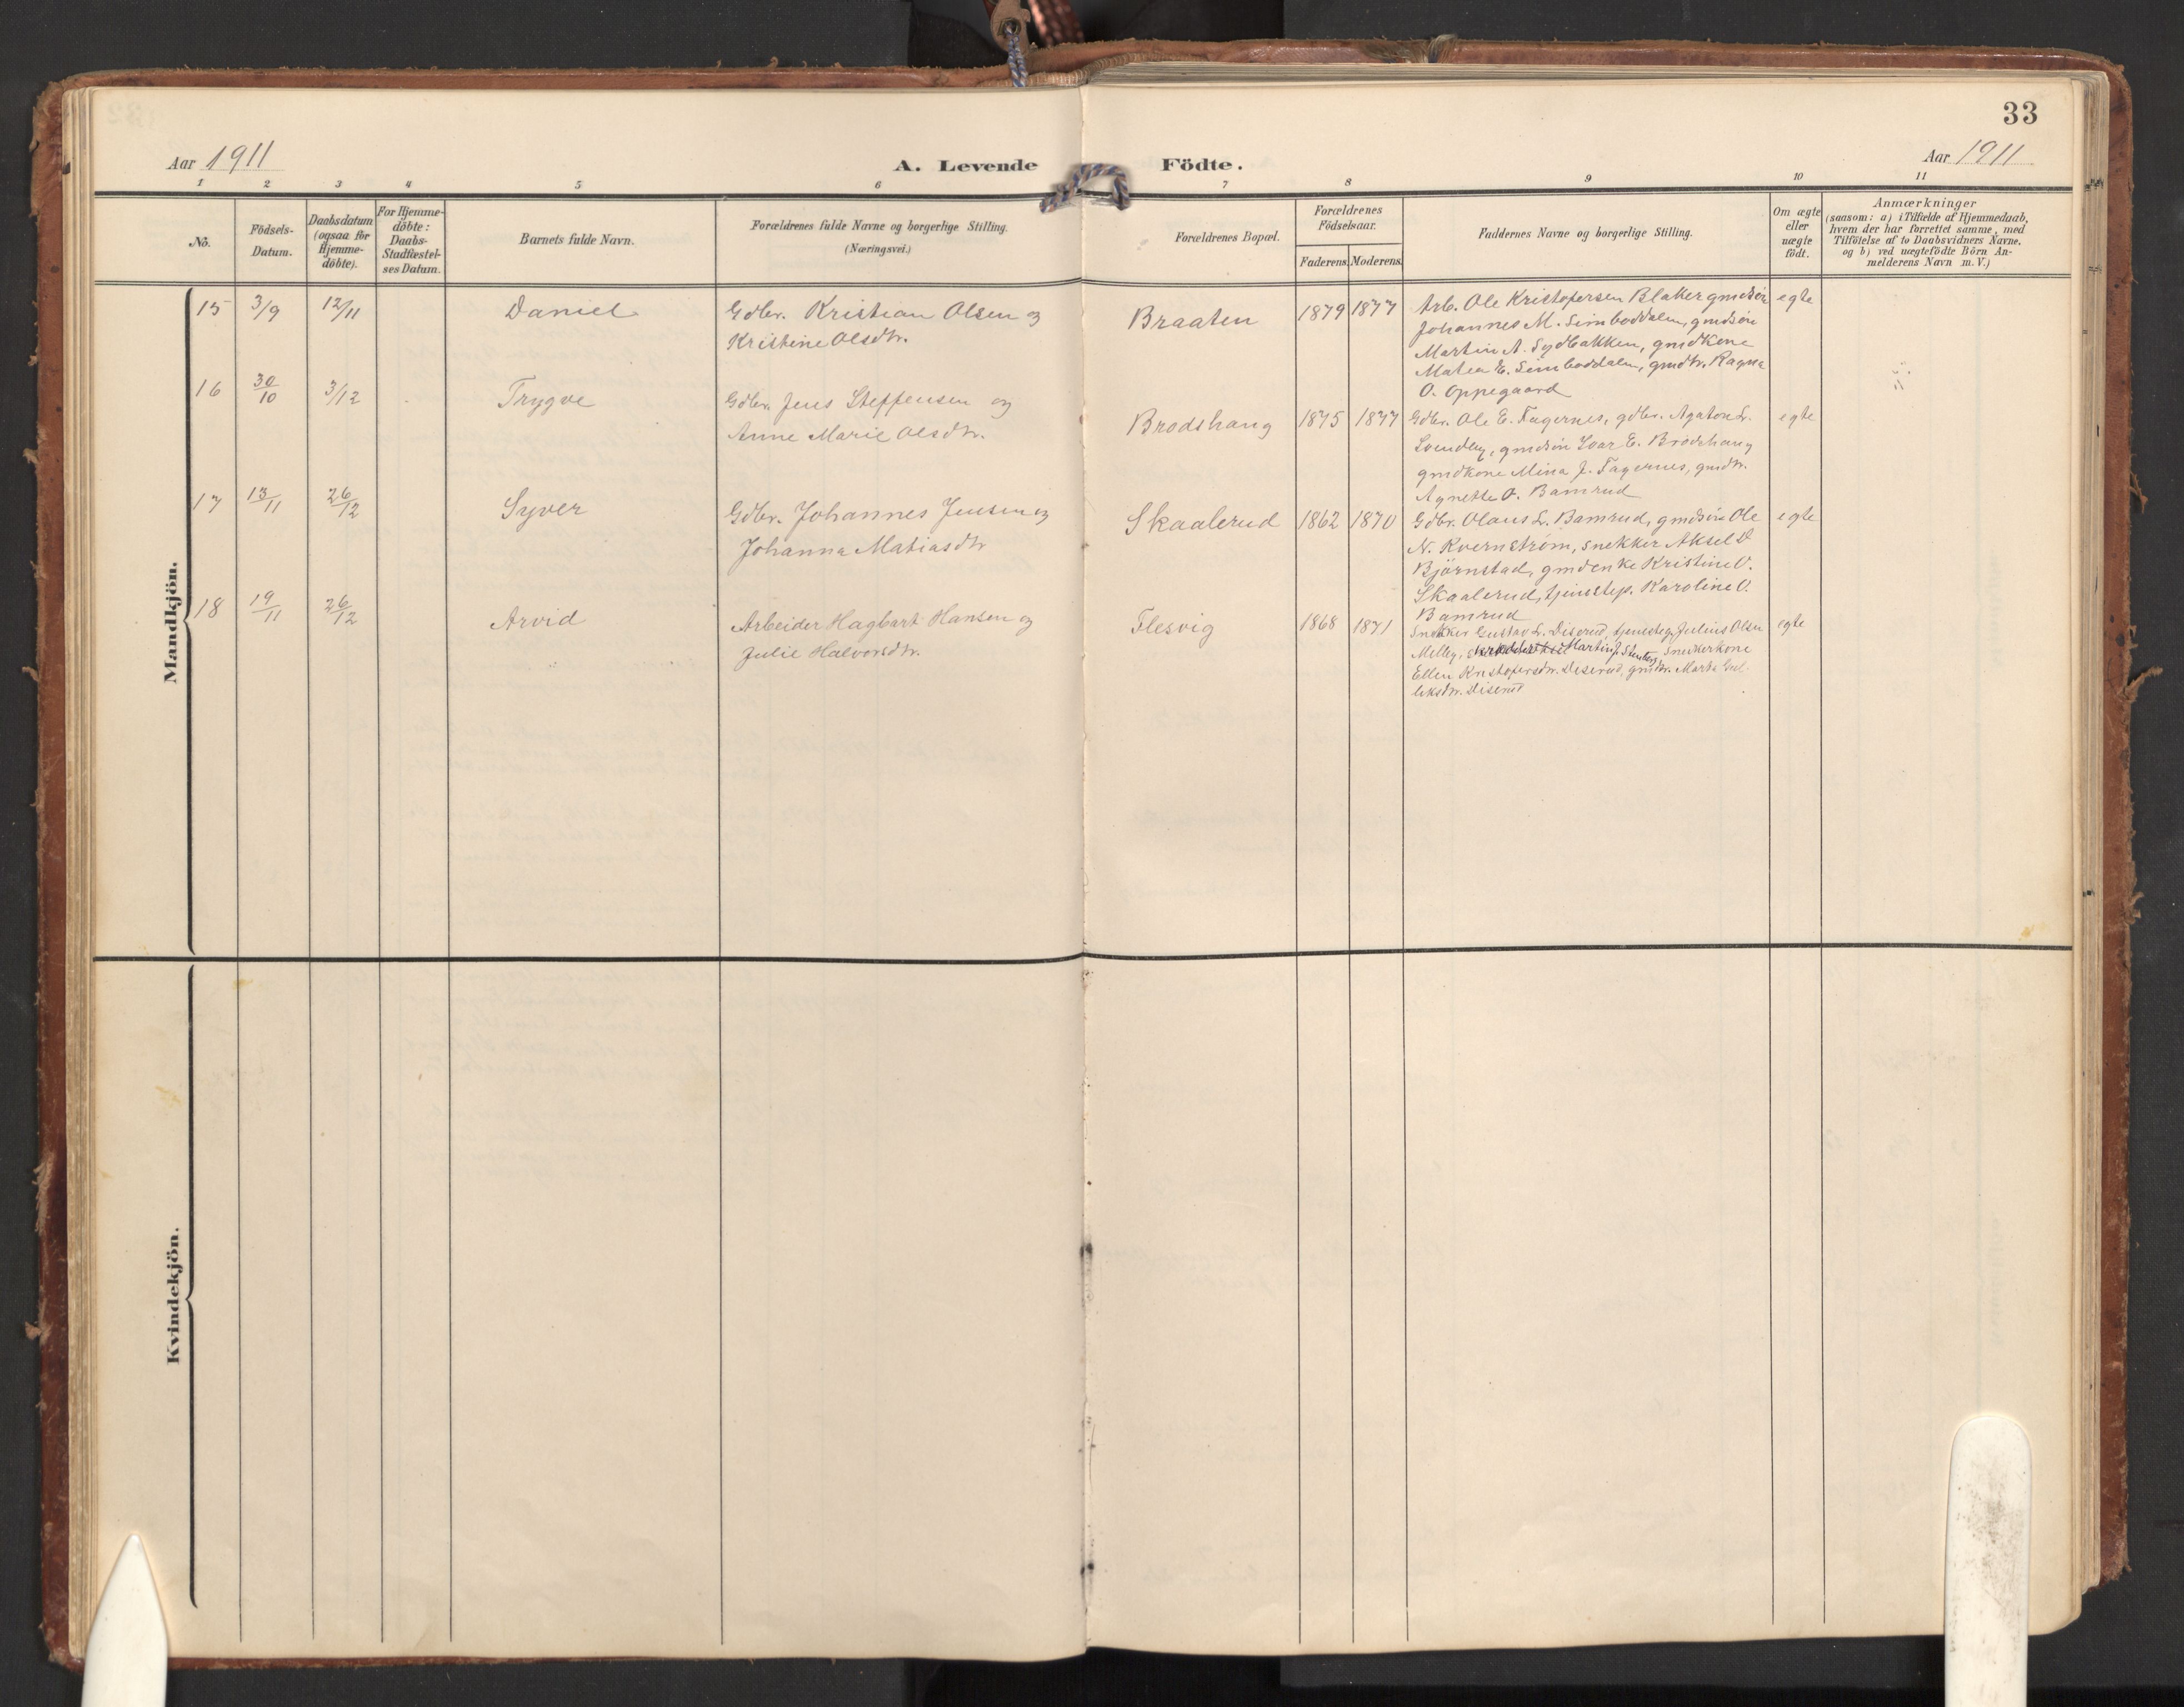 33
Aar 1911
A. Levende Födte.
Aar 1911
1 2 3 4 5 6 7 8 9 10 11
No.
Födsels-
Datum.
Daabsdatum
(ogsaa for
Hjemme-
döbte).
For Hjemme-
döbte:
Daabs-
Stadfæstel-
ses Datum.
Barnets fulde Navn.
Forældrenes fulde Navne og borgerlige Stilling.
(Næringsvei.)
Forældrenes Bopæl.
Forældrenes
Födselsaar.
Faderens. Moderens.
Faddernes Navne og borgerlige Stilling.
Om ægte
eller
uægte
födt.
Anmærkninger
(saasom: a) i Tilfælde af Hjemmedaab,
hvem der har forrettet samme, med
Tilföielse af to Daabsvidners Navne,
og b) ved uægtefödte Börn An-
melderens Navn m. V.)
Mandkjön.
15 3/9 12/11 Daniel
Gdbr. Kristian Olsen og
Kristine Olsdtr.
Braaten 1879 1877
Arb. Ole Kristofersen Blaker gmdsön
Johannes M. Simboddalen, gmdsön
Martin A. Sydbakken, gmdkone
Matea E. Simboddalen, gmdtr. Ragna
O. Oppegaard
egte
16 30/10 3/12 Trygve
Gdbr. Jens Steffensen og
Anne Marie Olsdtr.
Brodshaug 1875 1877
Gdbr. Ole E. Fagernes, gdbr. Agaton L.
gmdsön Ivar E. Brodshaug
gmdkone Mina J. Fagernes, gmdtr.
Agnette O. Bamrud
egte
17 13/11 26/12 Syver
Gdbr. Johannes Jensen og
Johanna Matiasdtr
Skaalerud 1862 1870
Gdbr. Olaus L. Bamrud, gmdsön Ole
N. Kvernström, snekker Aksel
Björnstad, gmdenke Kristine O.
Skaalerud, tjenestep. Karoline O.
Bamrud
egte
18 19/11 26/12 Arvid
Arbeider Hagbart Hansen og
Julie Halvorsdtr.
Flesvig 1868 1871
Snekker Gustav L. Diserud, tjenesteg. Julius Olsen
Melby, Martin J. Stenberg, Snekkerkone
Ellen Kristofersdtr. Diserud, gmdtr. Marta Gul-
liksdtr. Diserud
egte
Kvindekjön.